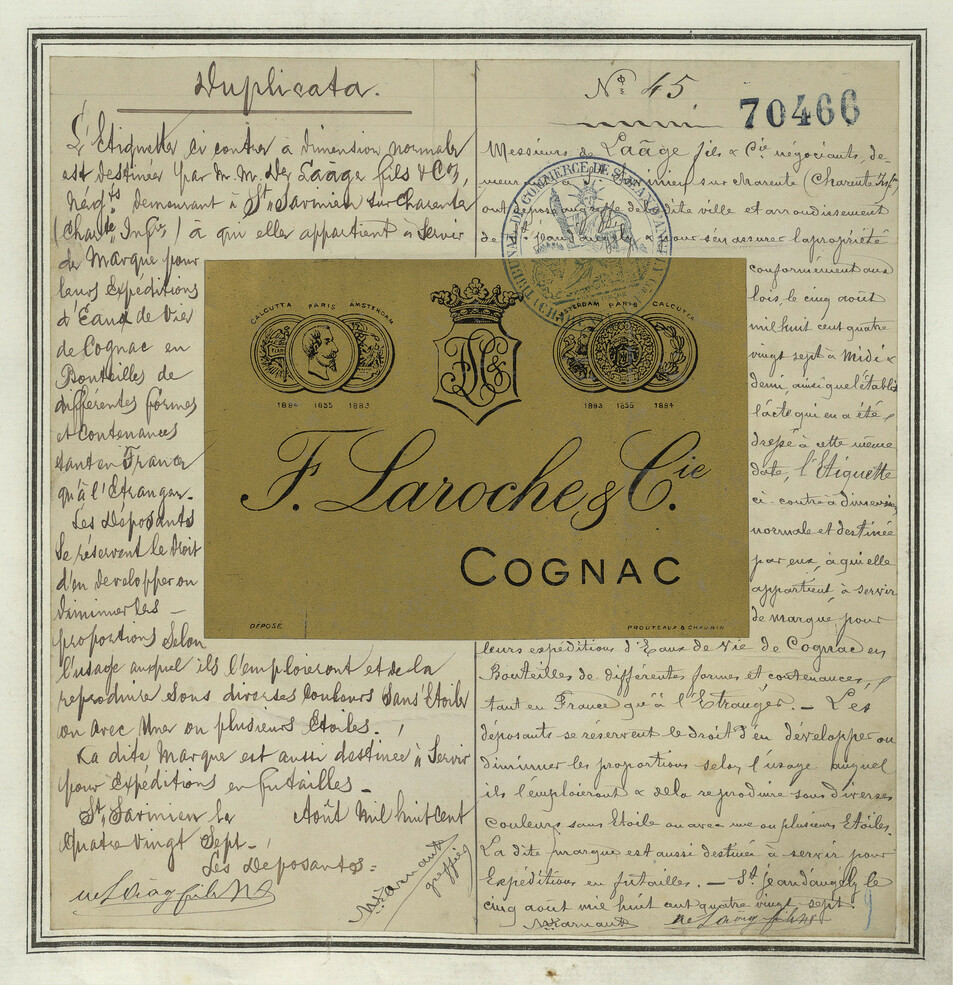 Duplicata.
L'Etiquette ci contre à dimension normale
est destinée par M. M. De Laâge fils & Cie,
négts demeurant à St Savinien sur Charente
(Charte Infre) à qui elle appartient à servir
de Marque pour
leurs Expéditions
d'Eaux de Vie
de Cognac en
Bouteilles de
différentes formes
et contenances
tant en France
qu'à l'Etranger.
Les déposants
se réservent le droit
d'en developper ou
diminuer les
proportions selon
l'usage auquel ils l'emploieront et de la
reproduire sous diverses Couleurs sans Etoile
ou avec Une ou plusieurs Etoiles.
La dite Marque est aussi destinée à Servir
pour Expéditions en futailles.
St Savinien le Août Mil huit cent
Quatre Vingt Sept.
Les Deposants:
greffier
No 45
70466
Messieurs de Laâge fils & Cie négociants, de-
sur Charente (Charente Infre
ont déposé au greffe de la dite ville et arrondissement
de St Jean d'angély & pour s'en assurer la propriété
conformément aux
lois, le cinq août
mil huit cent quatre
vingt sept à Midi &
demi, ainsi que l'établit
l'acte qui en a été
dressé à cette même
date, l'Etiquette
ci-contre à dimension
normale et destinée
par eux, à qui elle
appartient, à servir
de marque pour
leurs expéditions d'Eaux de Vie de Cognac en
Bouteilles de différentes formes et contenances,
tant en France qu'à l'Etranger. — Les
déposants se réservent le droit d'en développer ou
diminuer les proportions selon l'usage auquel
ils l'emploieront & de la reproduire sous diverses
couleurs sans Etoile ou avec une ou plusieurs Etoiles.
La dite marque est aussi destinée à servir pour
Expéditions en futailles. — St jean d'angély le
cinq août mil huit cent quatre vingt sept.
TRIBUNAL DE COMMERCE DE ST JEAN D'ANGELY
CALCUTTA PARIS AMSTERDAM
1884 1855 1883
AMSTERDAM PARIS CALCUTTA
1883 1855 1884
F. Laroche & Cie
COGNAC
DÉPOSÉ
PROUTEAUX & CHAUBIN